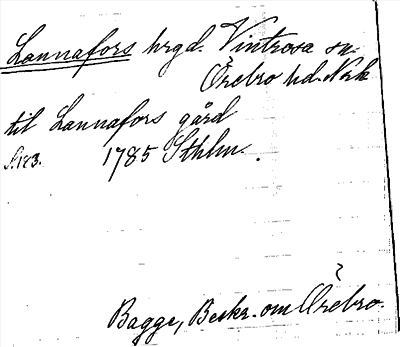 Lannafors hrgd. Vintrosa sn.
Örebro hd. Nrk
til Lannafors gård
S. 123. 1785 Sthlm.
Bagge, Beskr. om Örebro.